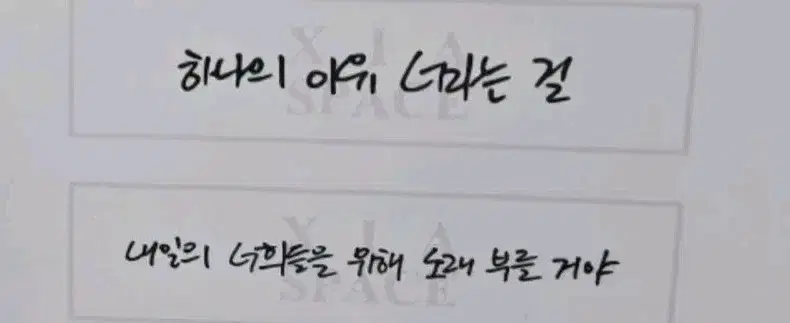 XIA
SPACE
하나의 이유 너라는 걸
XIA
SPACE
내일의 너희들을 위해 노래 부를 거야